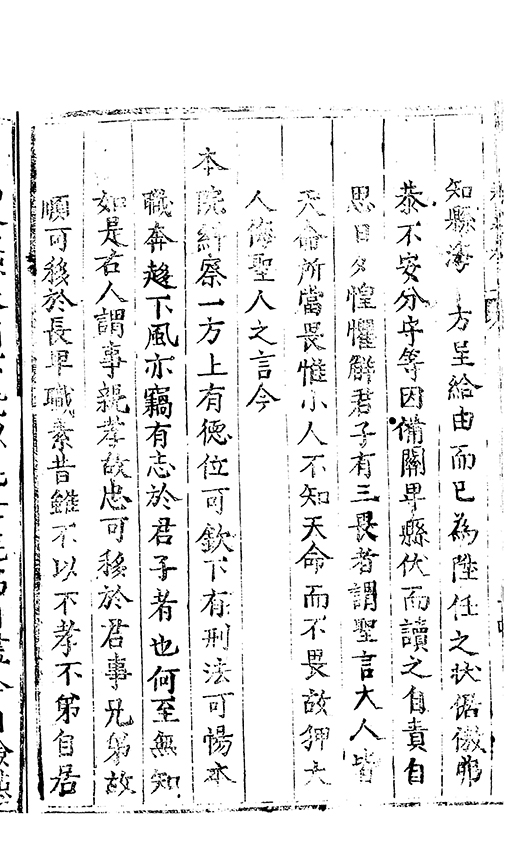 知縣海 方呈給由而已為陞任之狀倨傲弗
恭不安分守等因備關卑縣伏而讀之自責自
思日夕惶懼觧君子有三畏者謂聖言大人皆
天命所當畏惟小人不知天命而不畏故狎大
人侮聖人之言今
本院糾察一方上有德位可欽下有刑法可惕本
職奔趨下風亦竊有志於君子者也何至無知
如是右人謂事親孝故忠可移於君事兄弟故
順可移於長卑職素昔雖不以不孝不弟自居